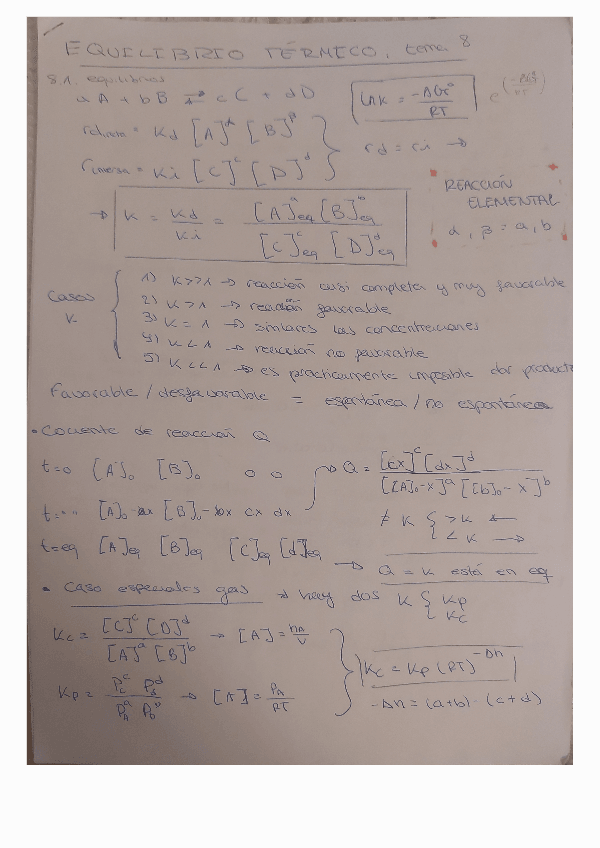 EQUILIBRIO TÉRMICO. tema 8
8.1. equilibrios
a A + b B ⇄ c C + d D
LnK = -ΔGrº / RT
rdirecta = Kd [A]^α [B]^β
rd = ri →
rinversa = Ki [C]^c [D]^d
REACCIÓN
ELEMENTAL
α, β = a, b
→ K = Kd / Ki = [A]^a eq [B]^b eq / [C]^c eq [D]^d eq
Casos K
1) K>>1 → reacción casi completa y muy favorable
2) K>1 → reacción favorable
3) K = 1 → similares las concentraciones
4) K<1 → reacción no favorable
5) K<<1 → es prácticamente imposible dar product
Favorable / desfavorable = espontánea / no espontánea
• Cociente de reacción Q
t=0 [A]₀ [B]₀ 0 0
→ Q = [cx]^c [dx]^d / [[A]₀-x]^a [[b]₀-x]^b
t=... [A]₀-ax [B]₀-bx cx dx
≠ K { >K ←
<K →
t=eq [A]eq [B]eq [C]eq [d]eq
→ Q = K está en eq
• Caso especiales gas → hay dos K { Kp
Kc
Kc = [C]^c [D]^d / [A]^a [B]^b → [A] = nA / V
Kp = Pc^c Pd^d / PA^a Pb^b → [A] = PA / RT
Kc = Kp (RT)^-Δn
-Δn = (a+b) - (c+d)